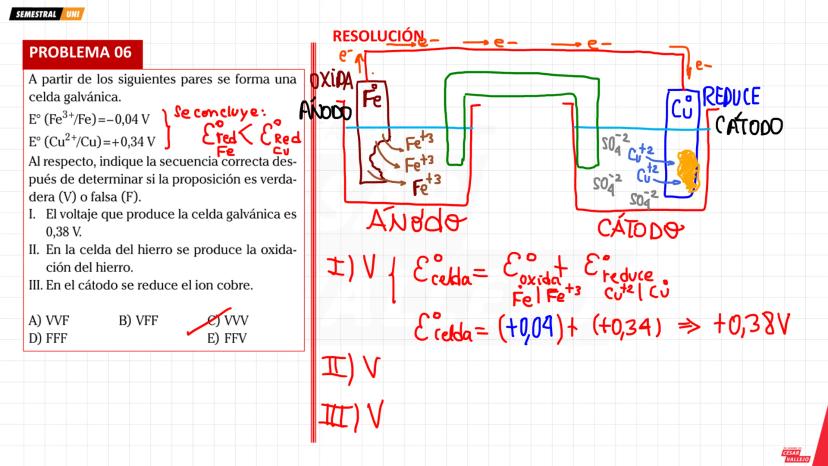 SEMESTRAL UNI
PROBLEMA 06
A partir de los siguientes pares se forma una
celda galvánica.
E° (Fe³⁺/Fe)=−0,04 V
E° (Cu²⁺/Cu)=+0,34 V
Se concluye:
Ɛ°red Fe < Ɛ°Red Cu
Al respecto, indique la secuencia correcta des-
pués de determinar si la proposición es verda-
dera (V) o falsa (F).
I. El voltaje que produce la celda galvánica es
0,38 V.
II. En la celda del hierro se produce la oxida-
ción del hierro.
III. En el cátodo se reduce el ion cobre.
A) VVF B) VFF C) VVV
D) FFF E) FFV
RESOLUCIÓN
e- e- e- e- e-
OXIDA
ÁNODO
Fe°
Fe+3
Fe+3
Fe+3
ÁNODO
Cu°
REDUCE
CÁTODO
SO4-2 Cu+2
Cu+2
SO4-2
SO4-2
CÁTODO
I) V { Ɛ°celda = Ɛ°oxida + Ɛ°reduce
Fe|Fe+3 Cu+2|Cu
Ɛ°celda = (+0,04) + (+0,34) ⇒ +0,38V
II) V
III) V
CESAR
VALLEJO